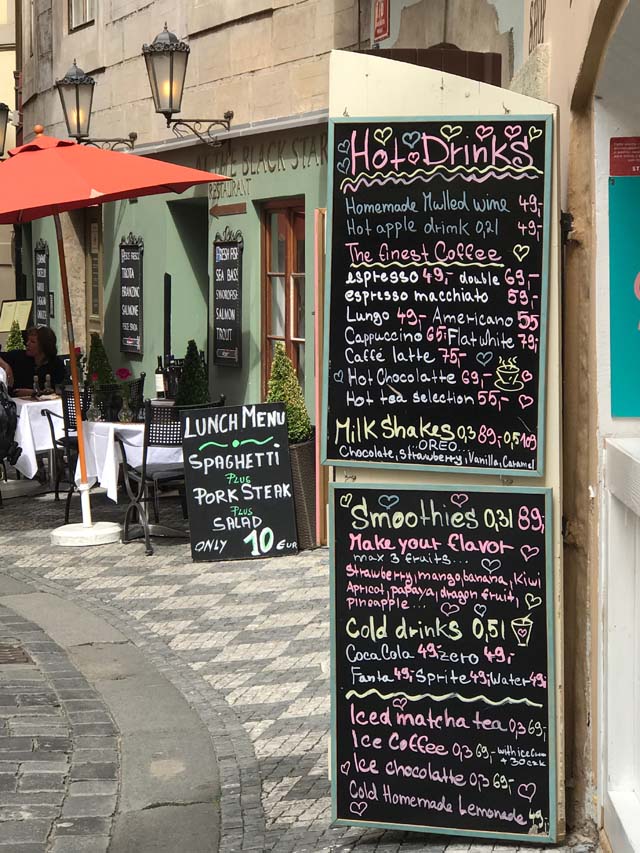 THE BLACK STAR
RESTAURANT
Hot Drinks
Homemade Mulled wine 49,-
Hot apple drink 0,2l 49,-
The finest Coffee
espresso 49,- double 69,-
espresso macchiato 59,-
Lungo 49,- Americano 55
Cappuccino 65,- Flat white 79,-
Caffé latte 75,-
Hot Chocolatte 69,-
Hot tea selection 55,-
Milk Shakes 0,3 89,- 0,5 109
OREO
Chocolate, strawberry, Vanilla, Caramel
Smoothies 0,3l 89,-
Make your flavor
max 3 fruits...
Strawberry, mango, banana, Kiwi
Apricot, papaya, dragon fruit,
pineapple...
Cold drinks 0,5l
Coca Cola 49,- zero 49,-
Fanta 49,- Sprite 49,- Water 49,-
Iced matcha tea 0,3 69,-
Ice Coffee 0,3 69,- with ice cream
+ 30 czk
Ice chocolatte 0,3 69,-
Cold Homemade Lemonade 49,-
LUNCH MENU
SPAGHETTI
PLUS
PORK STEAK
PLUS
SALAD
ONLY 10 EUR
FRESH FISH
SEA BASS
SWORDFISH
SALMON
TROUT
TILOTA
BRANZINO
SALMONE